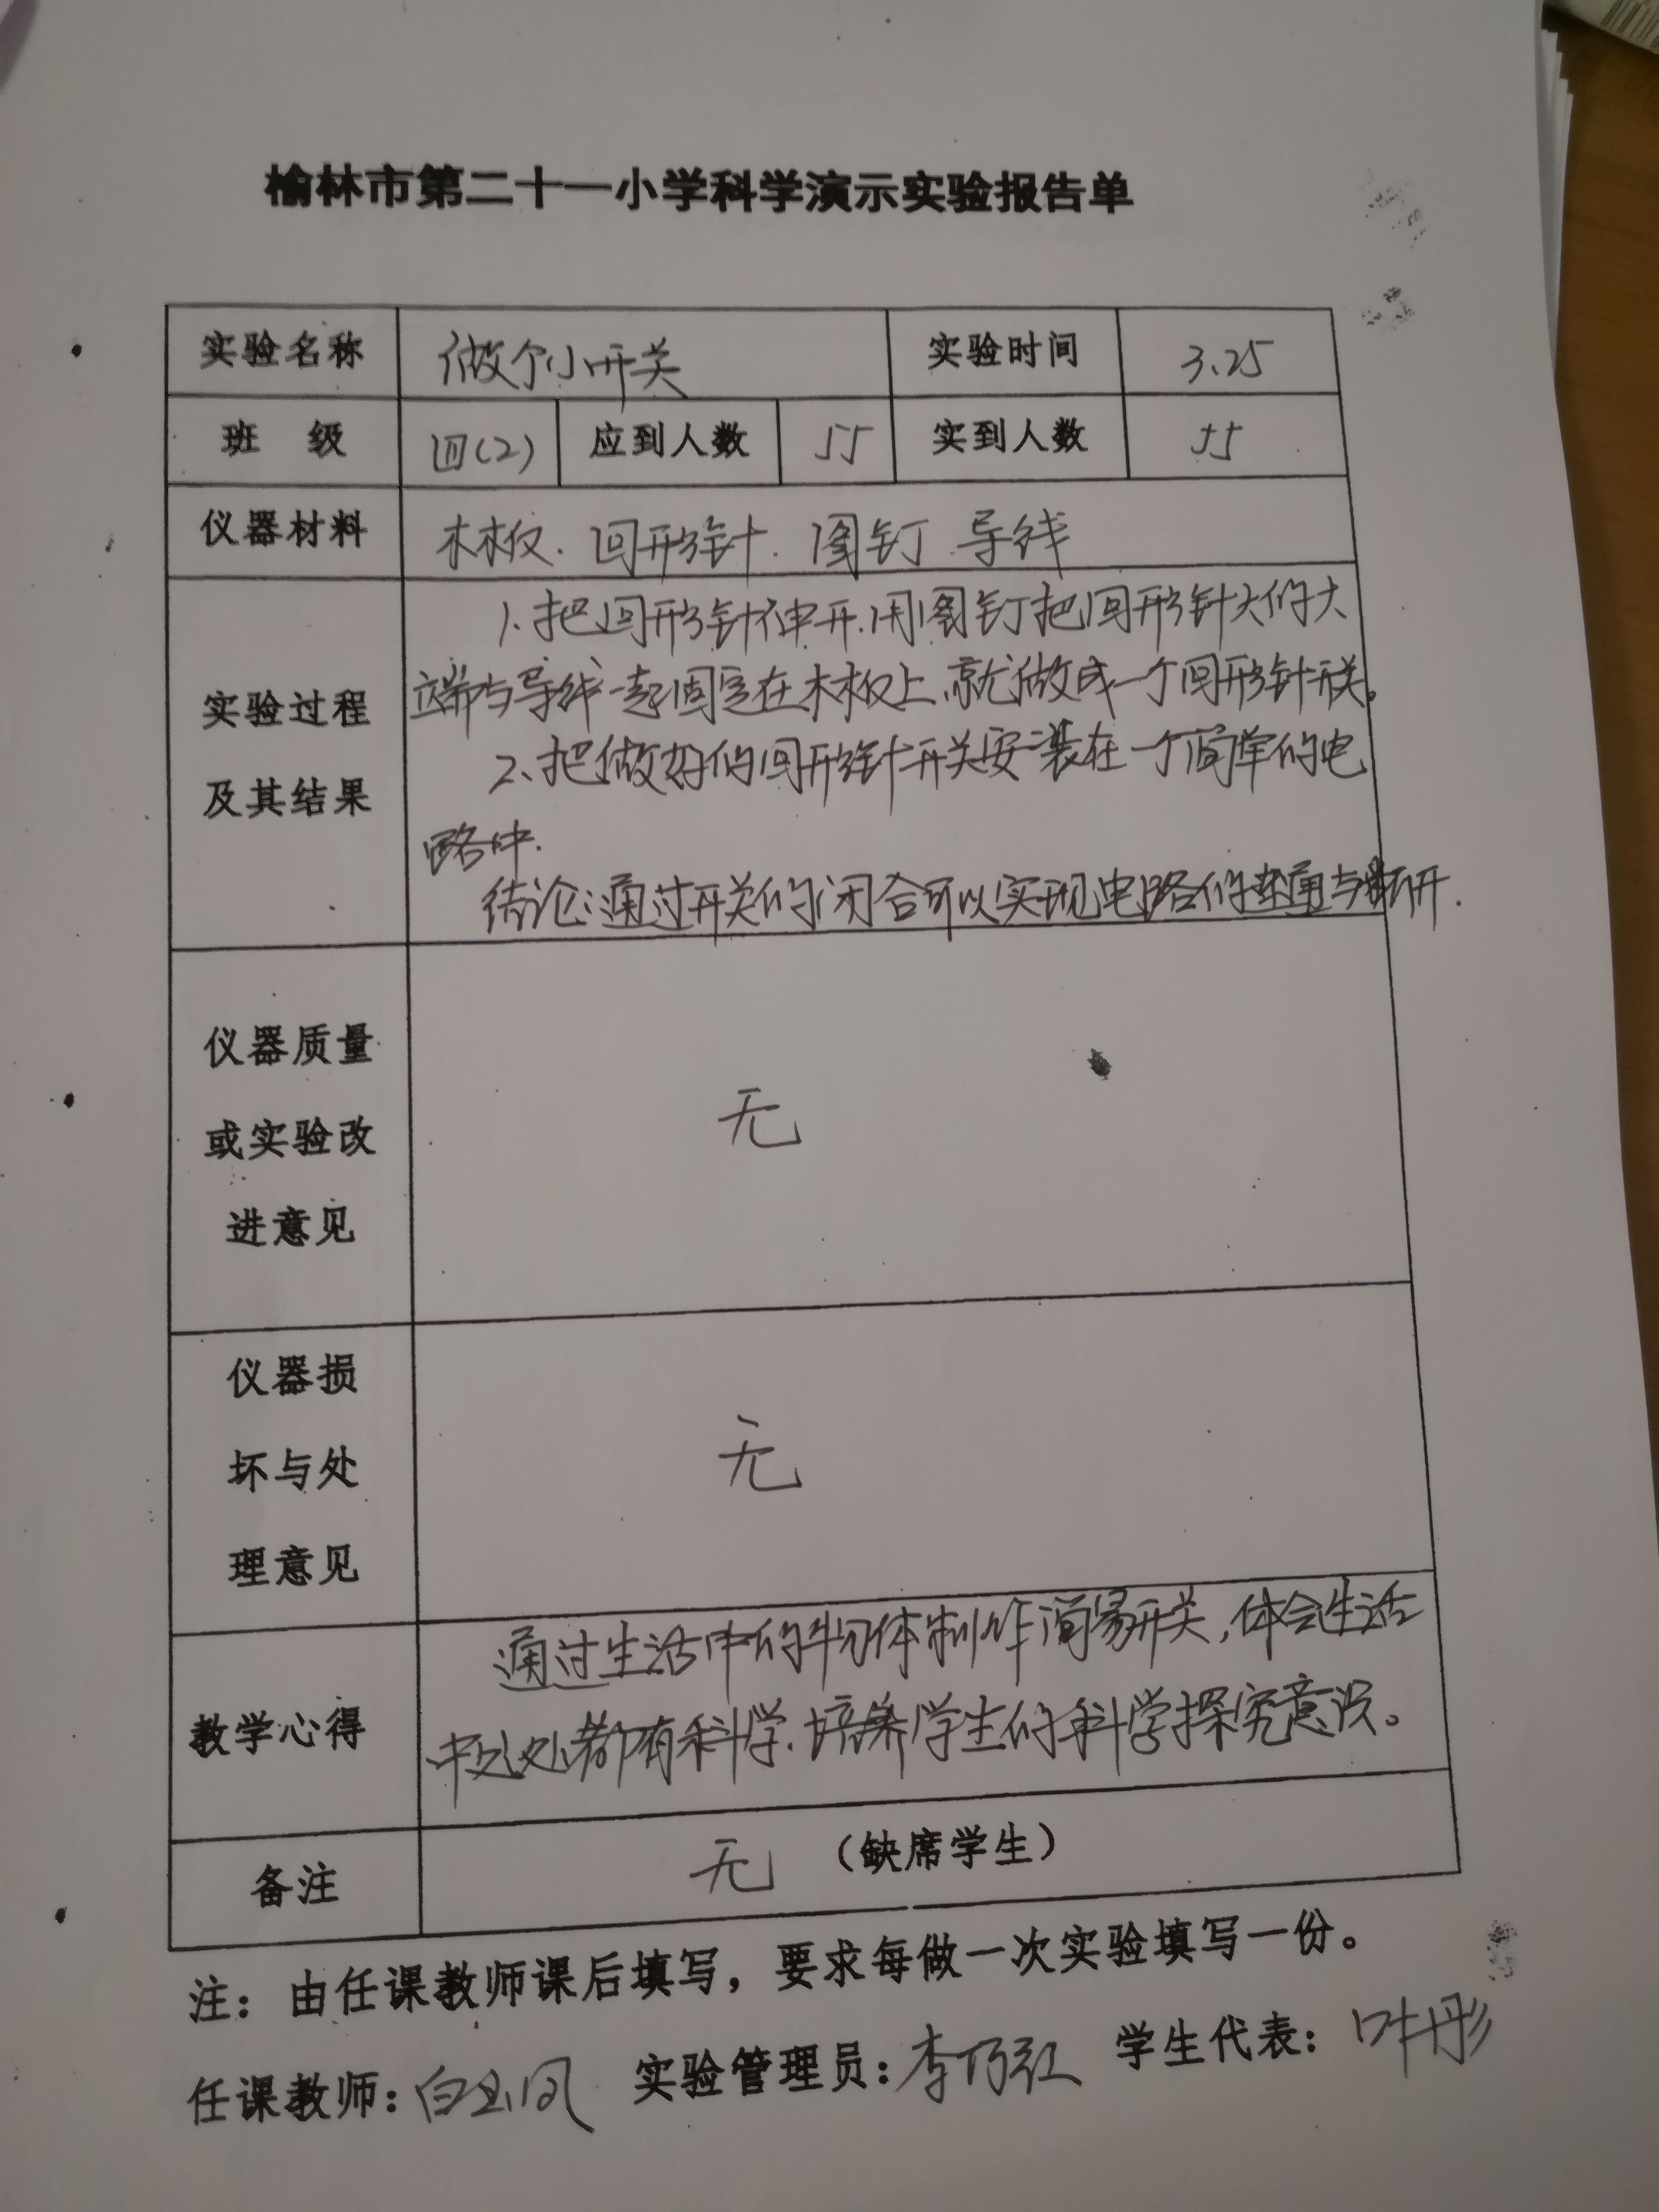 榆林市第二十一小学科学演示实验报告单
实验名称 做个小开关 实验时间 3.25
班 级 四(2) 应到人数 55 实到人数 55
仪器材料 木板. 回形针. 图钉 导线
实验过程
及其结果
1.把回形针伸开.用图钉把回形针大的大
端与导线一起固定在木板上.就做成一个回形针开关。
2、把做好的回形针开关安装在一个简单的电
路中.
结论:通过开关的闭合可以实现电路的连通与断开.
仪器质量
或实验改
进意见
无
仪器损
坏与处
理意见
无
教学心得
通过生活中的物体制作简易开关,体会生活
中处处都有科学.培养学生的科学探究意识。
备注 无 (缺席学生)
注: 由任课教师课后填写, 要求每做一次实验填写一份。
任课教师: 白玉凤 实验管理员: 李巧红 学生代表: 叶彤